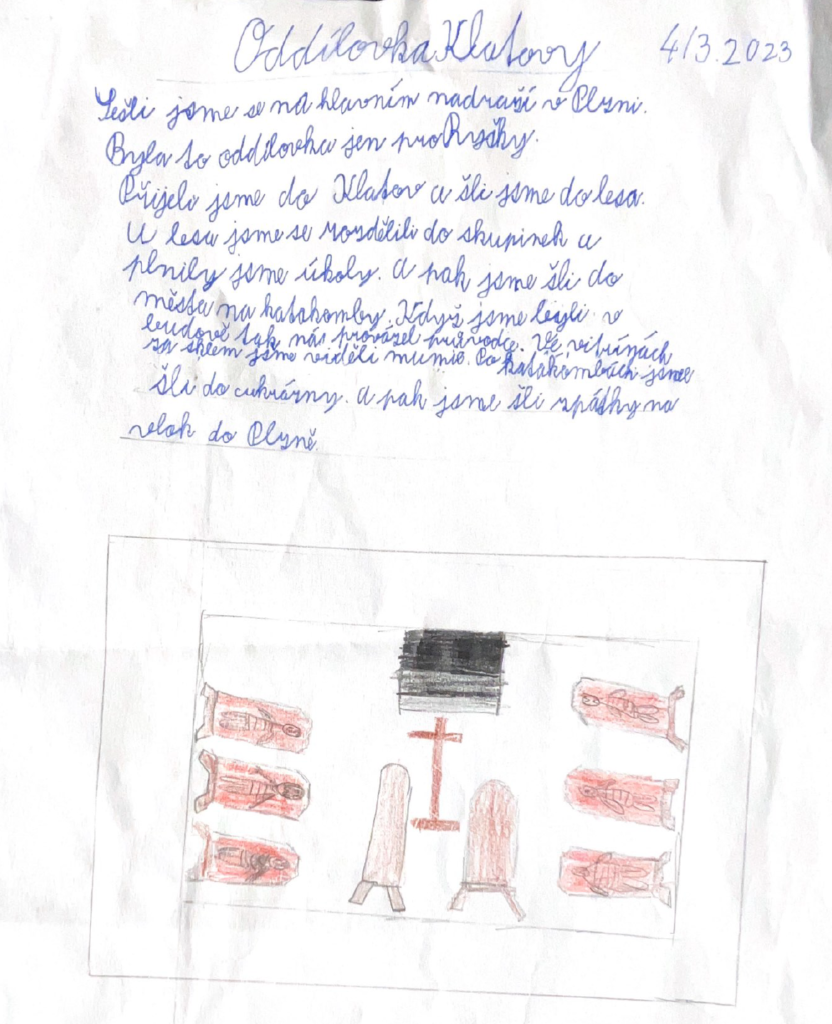 Oddílovka Klatovy 4/3.2023
Sešli jsme se na hlavním nadraší v Plzni.
Byla to oddílovka jen pro Ryšky.
Přijelo jsme do Klatov a šli jsme do lesa.
U lesa jsme se rozdělili do skupinek a
plnily jsme úkoly. a pak jsme šli do
města na katakomby. Když jsme byli v
budově tak nás provázel průvodce. Ve vitrínách
za sklem jsme viděli mumie. Po katakombách jsme
šli do cukrárny. a pak jsme šli zpátky na
vlak do Plzně.